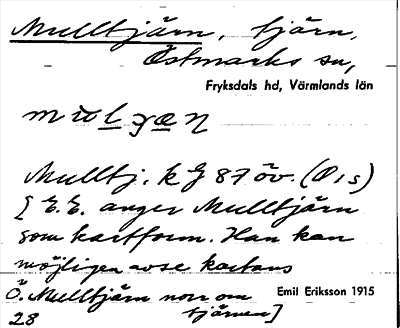 Mulltjärn, tjärn,
Östmarks sn,
Fryksdals hd, Värmlands län
Mulltj. k G 87 öv. (Ö 1 s)
[E.E. anger Mulltjärn
som kartform. Han kan
möjligen avse kartans
Ö. Mulltjärn norr om
tjärnen]
Emil Eriksson 1915
28